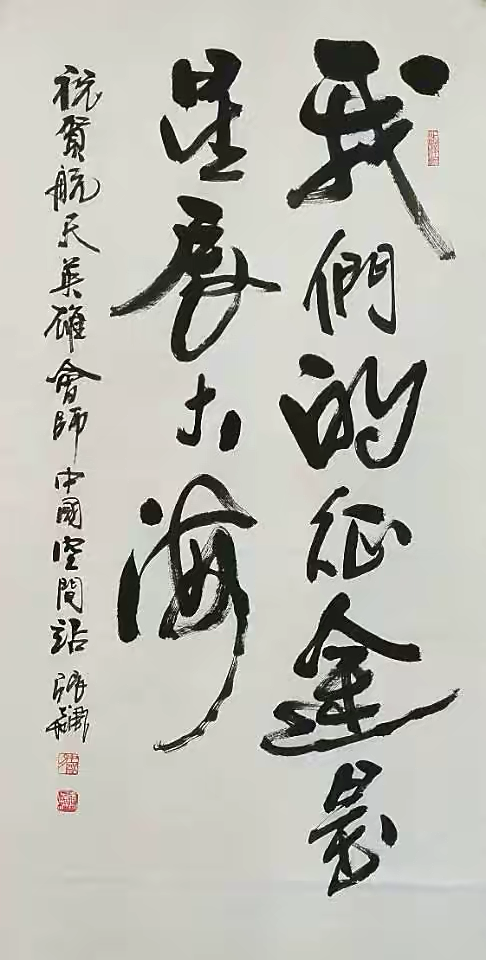 我們的征途是
星辰大海
祝賀航天英雄會師中國空間站 張